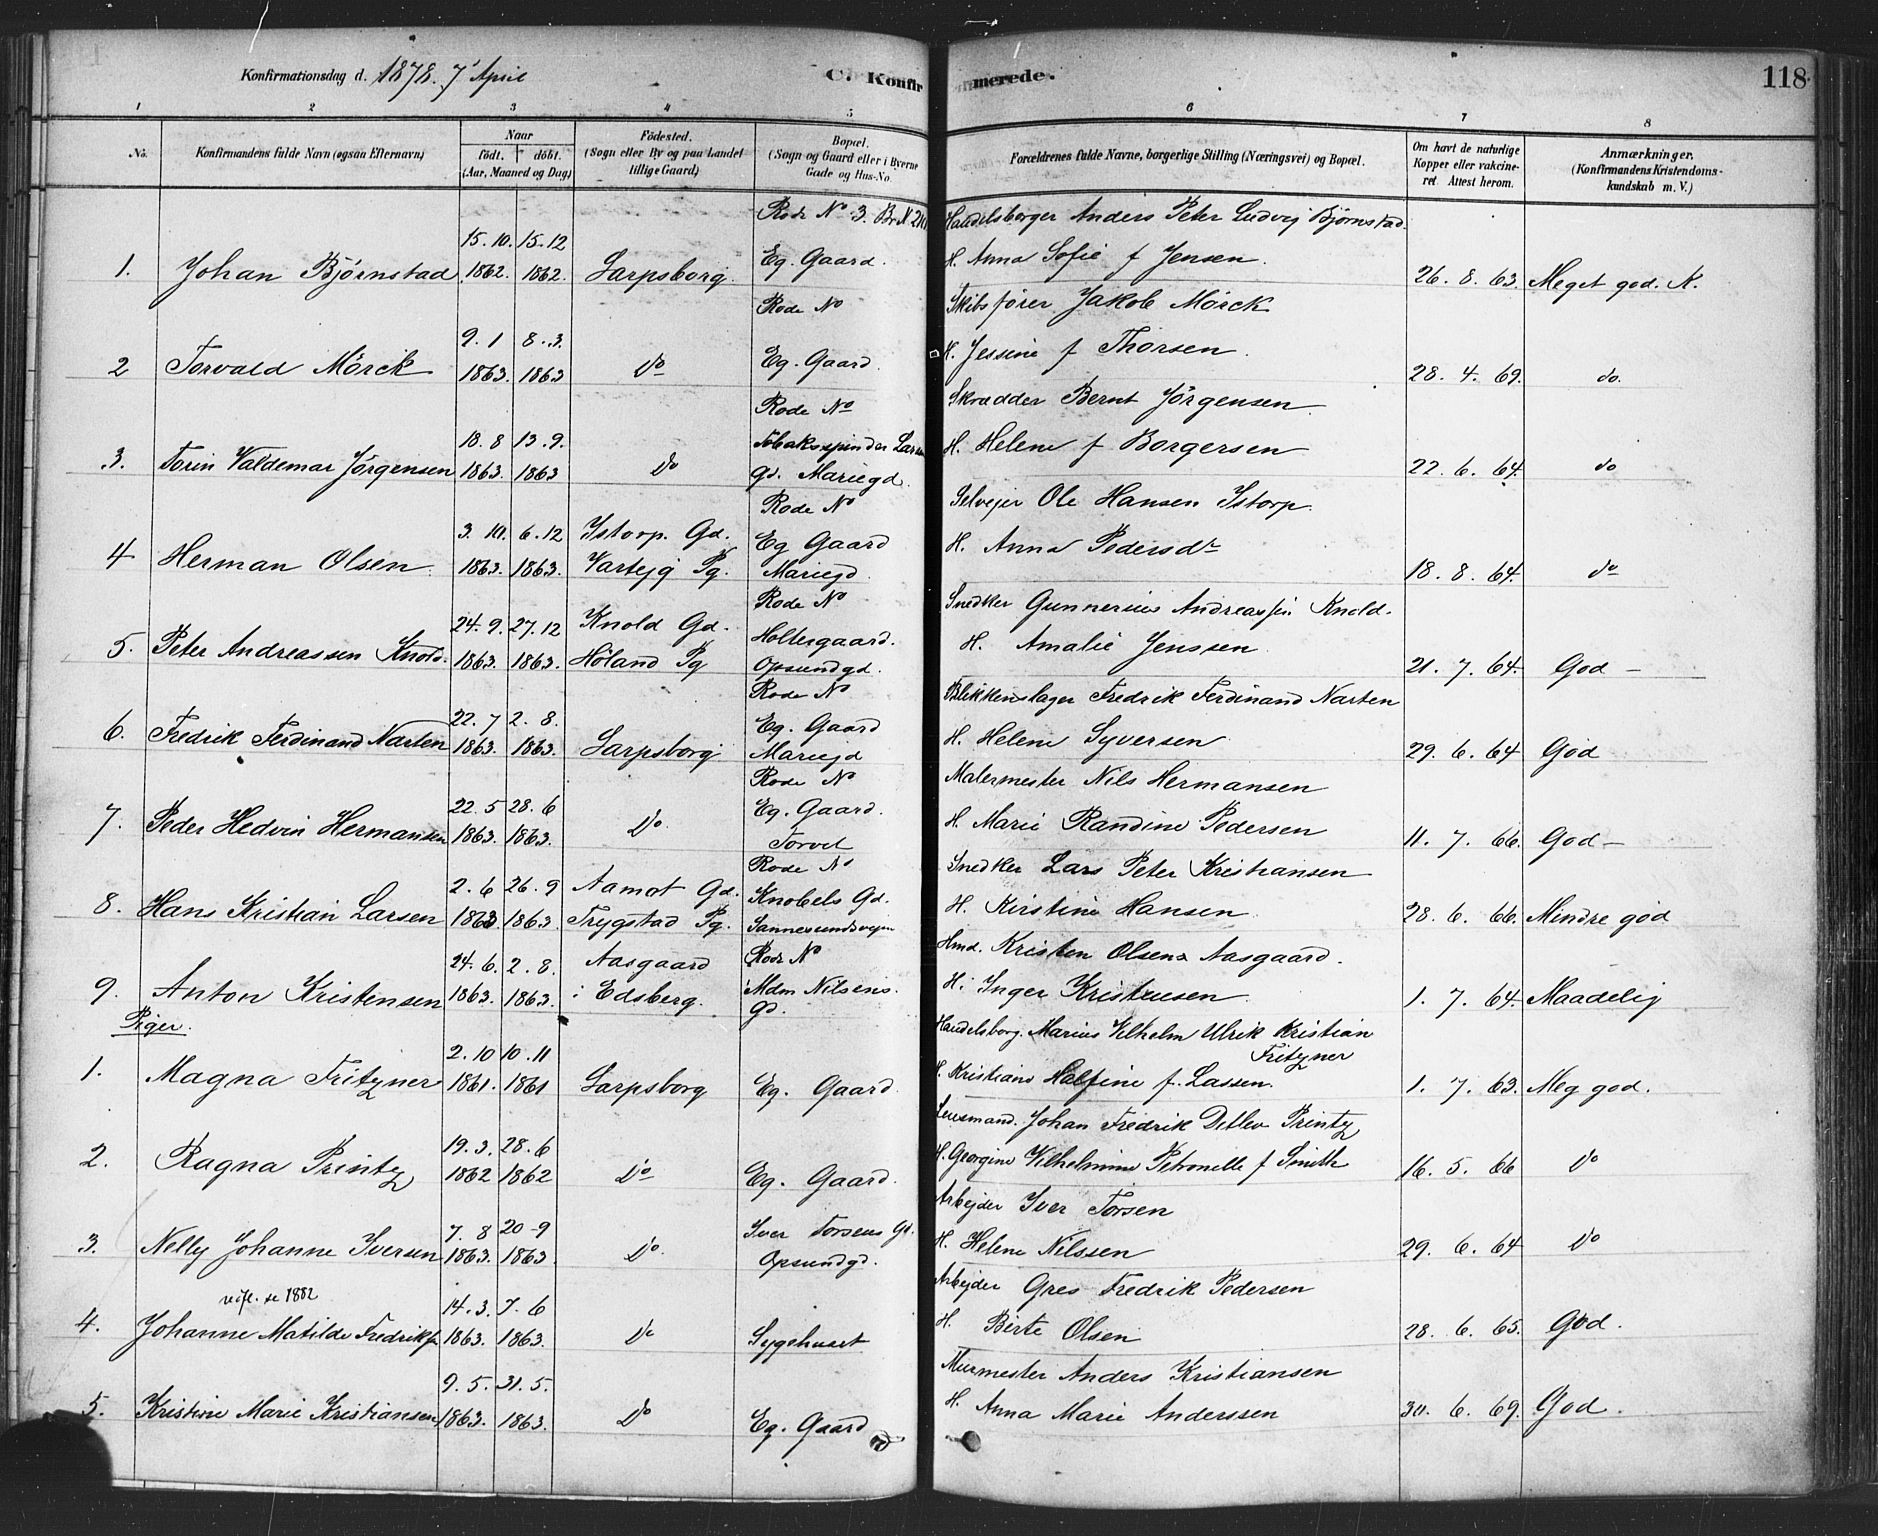 Konfirmationsdag d. 1878. 7' April
C. Konfirmerede.
118
1 2 3 4 5 6 7 8
No.
Konfirmandens fulde Navn (ogsaa Efternavn)
Naar
födt. döbt.
(Aar, Maaned og Dag)
Födested.
(Sogn eller By og paa Landet
tillige Gaard)
Bopæl.
(Sogn og Gaard eller i Byerne
Gade og Hus-No.
Forældrenes fulde Navne, borgerlige Stilling (Næringsvei) og Bopæl.
Om havt de naturlige
Kopper eller vakcine-
ret. Attest herom.
Anmærkninger.
(Konfirmandens Kristendoms-
kundskab m. V.)
Rode No 3. Br. N
Handelsborger Anders Peter Ludvig Bjørnstad.
15. 10. 15. 12
1. Johan Bjørnstad 1862. 1862. Sarpsborg. Eg. Gaard.
H. Anna Sofie f Jensen. 26. 8. 63. Meget god. N.
Rode No
Skibsfører Jakob Mörck
9. 1 8. 3.
2 Torvald Mörck 1863. 1863 Do Eg. Gaard.
H. Jessine f Thorsen. 28. 4. 69. do.
Rode No
Skrædder Bernt Jörgensen
18. 8 13. 9.
3. Torin Valdemar Jørgensen 1863. 1863 Do
Tobaksspinder Larsen
Gd. Mariegd.
H. Helene f Borgersen 22. 6. 64. do
Rode No
Selvejer Ole Hansen Istorp.
3. 10. 6. 12 Istorp. Gd. Eg Gaard
4 Herman Olsen. 1863. 1863. Vartejg Pg. Mariegd.
H. Anna Pedersdr 18. 8. 64. do
Rode No
Snedker Gunnerius Andreassen Knold.
24. 9. 27. 12 Knold Gd. Holtergaard.
5. Peter Andreassen Knold. 1863. 1863. Høland Pg Opsundgd.
H. Amalie Jenssen 21. 7. 64. God —
Rode No
Blikkenslager Fredrik Ferdinand Narten
22. 7 2. 8. Eg. Gaard
6. Fredrik Ferdinand Narten 1863. 1863. Sarpsborg Mariegd
H. Helene Syversen 29. 6. 64 God
Rode No
Malermester Nils Hermansen
22. 5 28. 6 Eg. Gaard.
7. Peder Hedvin Hermansen 1863. 1863. Do. Torvet
H. Marie Randine Pedersen 11. 7. 66. God —
Rode No
Snedker Lars Peter Kristiansen
2. 6 26. 9 Aamot Gd. Knobels Gd.
8. Hans Kristian Larsen 1863 1863. Trygstad Pg. Sannesundsvejen
H. Kirstine Hansen 28. 6. 66. Mindre god
Rode No
Hmd. Kristen Olsen Aasgaard.
24. 6. 2. 8. Aasgaard
9. Anton Kristensen 1863. 1863. i Edsberg. Mdm Nilsens. Gd.
H. Inger Kristensen 1. 7. 64. Maadelig
Piger.
Handelsborg. Marius Vilhelm Ulrik Kristian
Fritzner
2. 10 10. 11
1. Magna Fritzner 1861. 1861 Sarpsborg Eg. Gaard.
H. Kristiane Halfine f. Lassen. 1. 7. 63. Meg god.
Lensmand. Johan Fredrik Detlev Printz
19. 3. 28. 6
2. Ragna Printz 1862 1862 Do Eg. Gaard.
H. Georgine Vilhelmine Petronelle f Smith 16. 5. 66 Do
Arbejder Iver Torsen
7. 8 20-9 Iver Torsens Gd.
3. Nelly Johanne Iversen 1863. 1863. Do. Opsundgd.
H. Helene Nilssen 29. 6. 64 Do
se 1882
Arbejder Gres Fredrik Pedersen
14. 3. 7. 6
4. Johanne Matilde Fredriksen 1863. 1863. Do Sygehuset
H. Birte Olsen 28. 6. 65. God.
Murmester Anders Kristiansen
9. 5. 31. 5.
5. Kristine Marie Kristiansen 1863. 1863. Do Eg. Gaard
H. Anna Marie Anderssen 30. 6. 69. God.